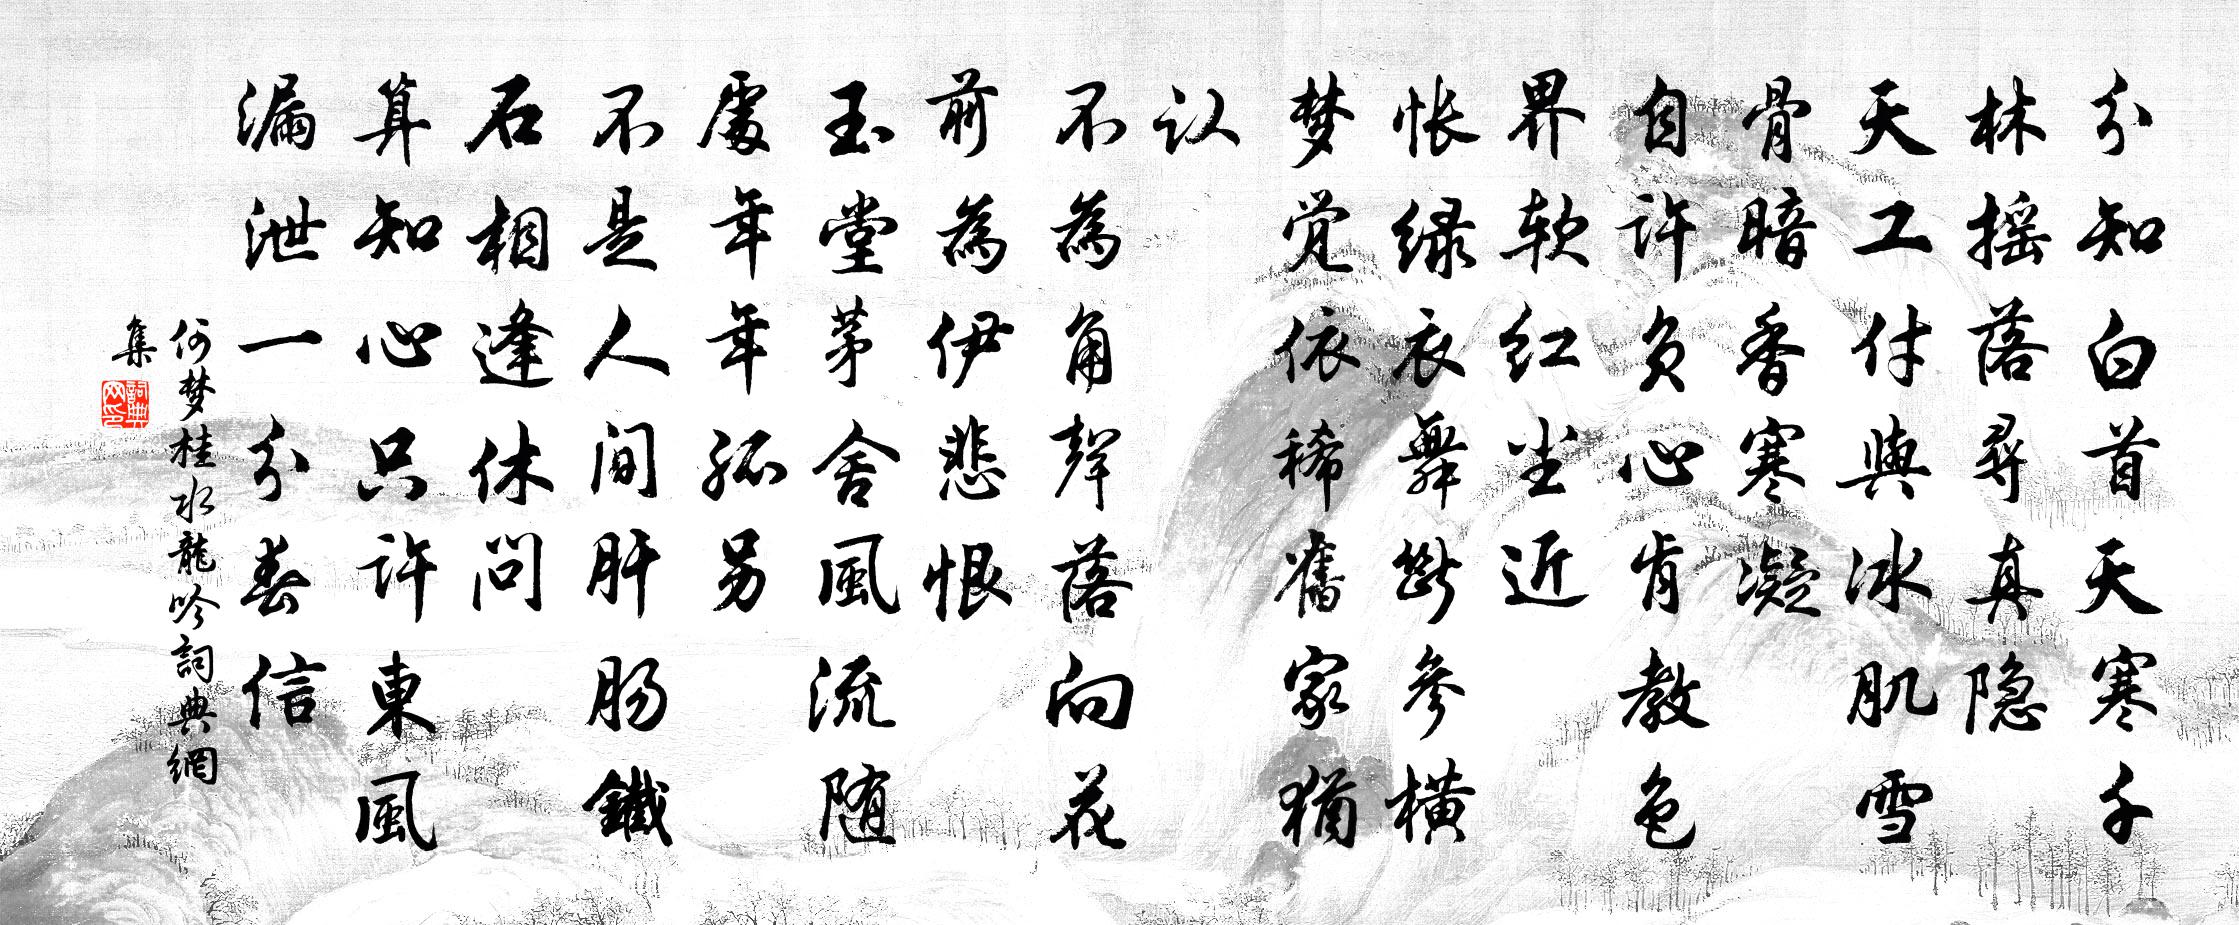 分知白首天寒千
林摇落尋真隐
天工付與冰肌雪
骨暗香寒凝
自许负心肯教色
界软红尘近
怅绿衣舞断参横
梦觉依稀舊家猶
认
不為角聲落向花
前為伊悲恨
玉堂茅舍風流随
處年年孤另
不是人间肝肠鐵
石相逢休问
算知心只许東風
漏泄一分春信
何梦桂水龍吟詞典網
集
詞典
网印